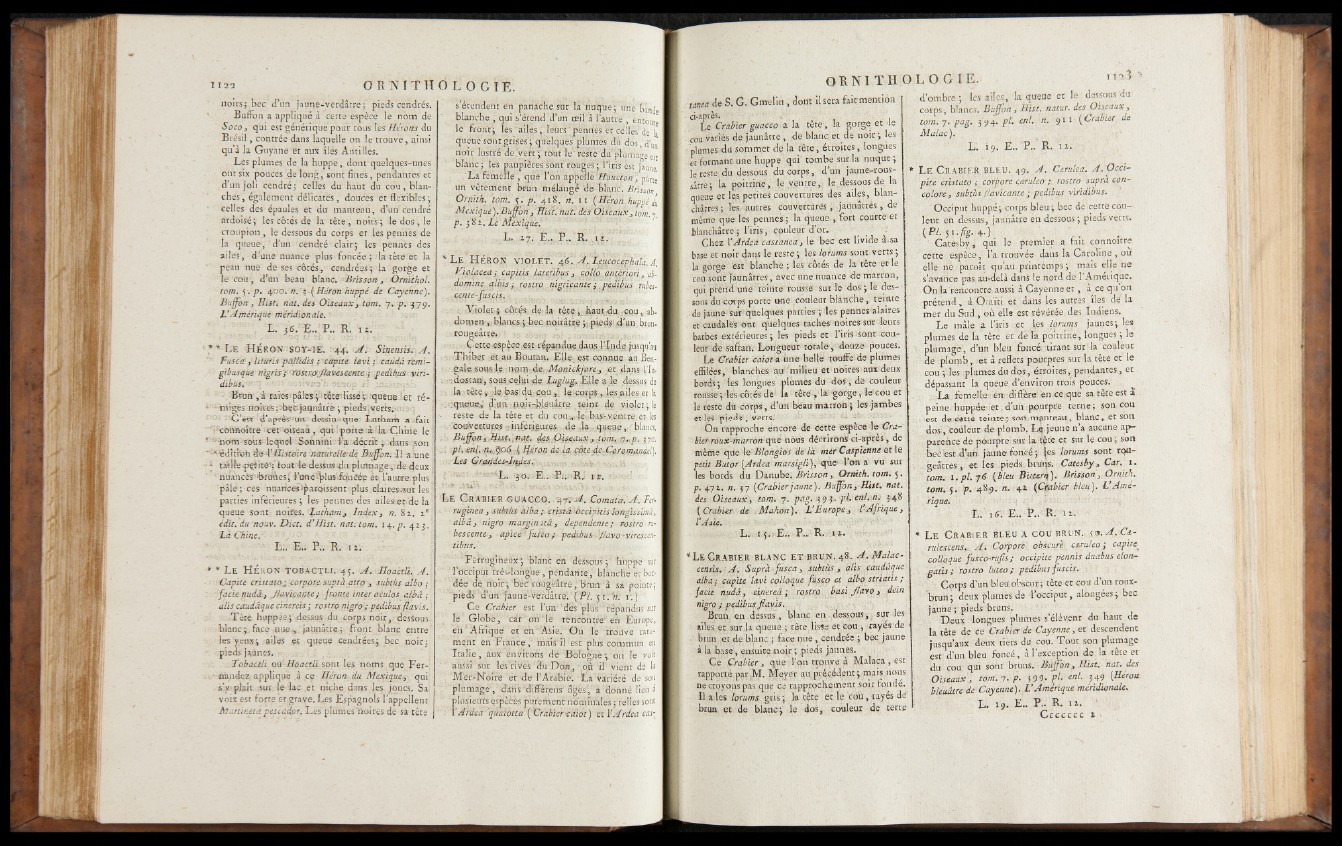 1122 ORNITHOLOGIE.
noirs; bec d'un jaune-verdâtre; pieds cendrés.
Buffon a appliqué à cette espèce le nom de
Soco, qui est générique pour tous les Hérons du
Brésil, contrée dans laquelle on le trouve, ainsi
qu'à la Guyane et aux îles Antilles.
Les plumes de la huppe, dont quelques-unes
ont six pouces de long, sont fines, pendantes et
d'un joli cendré; celles du haut du cou, blan-
ches, également délicates, douces et flexibles;
celles des épaules et du manteau, d'un cendré
ardoisé; les côtés de la tête, noirs; le dos, le
croupion, le dessous du corps et les pennes de
la queue, d'un cendré clair; les pennes des
ailes, d'une nuance plus foncée; la tête et la
peau nue de ses côtés, cendrées; la gorge et
le cou, d'un beau blanc. Brisson, Ornithol.
tom. 5. p. 400. n. 3 (Héron huppé de Cayenne).
Buffon, Hist. nat. des Oiseaux, tom. 7. p. 379.
L'Amérique méridionale.
L. 36. E.. P.. R. 12.
* * LE HÉRON SOY-IE. 44. A. Sinensis. A.
Fusca, lituris pallidis; capite lævi; caudâ remi-
gibusque nigris; rostro flavescente; pedibus viri-
dibus.
Brun, à raies pâles; tête lisse; queue et ré-
miges noires; bec jaunâtre; pieds verts.
C'est d'après un dessin que Latham a fait
connoître cet oiseau, qui porte à la Chine le
nom sous lequel Sonnini l'a décrit, dans son
édition de l'Histoire naturelle de Buffon. Il a une
taille petite; tout le dessus du plumage, de deux
nuances brunes, l'une plus foncée et l'autre plus
pâle; ces nuances paroissent plus claires sur les
parties inférieures; les pennes des ailes et de la
queue sont noires. Latham, Index, n. 82. 2e
édit. du nouv. Dict. d'Hist. nat. tom. 14. p. 423.
La Chine.
L.. E.. P.. R. 12.
* * LE HÉRON TOBACTLI. 45. A. Hoactli. A.
Capite cristato; corpore suprà atro, subtùs albo;
facie nudâ, flavicante; fronte inter oculos albâ;
alis caudâque cinereis; rostro nigro; pedibus flavis.
Tête huppée; dessus du corps noir, dessous
blanc; face nue, jaunâtre; front blanc entre
les yeux; ailes et queue cendrées; bec noir;
pieds jaunes.
Tobactli ou Hoactli sont les noms que Fer-
nandez applique à ce Héron du Mexique, qui
s'y plaît sur le lac et niche dans les joncs. Sa
voix est forte et grave. Les Espagnols l'appellent
Martineta pescador. Les plumes noires de sa tête
s'étendent en panache sur la nuque; une bande
blanche, qui s'étend d'un œil à l'autre, entoure
le front; les ailes, leurs pennes et celles de la
queue sont grises; quelques plumes du dos, d'un
noir lustré de vert; tout le reste du plumage est
blanc; les paupières sont rouges; l'iris est jaune.
La femelle, que l'on appelle Houcton, porte
un vêtement brun mélangé de blanc. Brisson,
Ornith. tom. 5. p. 418. n. 11 (Héron huppé du
Mexique). Buffon, Hist. nat. des Oiseaux, tom. 7.
p. 382. Le Mexique.
L. 27. E.. P.. R. 12.
* LE HÉRON VIOLET. 46. A. Leucocephala. A.
Violacea; capitis lateribus, collo anteriori, ab-
domine albis; rostro nigricante; pedibus rubes-
cente-fuscis.
Violet; côtés de la tête, haut du cou, ab-
domen, blancs; bec noirâtre; pieds d'un brun-
rougeâtre.
Cette espèce est répandue dans l'Inde jusqu'au
Thibet et au Boutan. Elle est connue au Ben-
gale sous le nom de Monickjore, et dans l'In-
dostan, sous celui de Luglug. Elle a le dessus de
la tête, le bas du cou, le corps, les ailes et la
queue, d'un noir-bleuâtre teint de violet; le
reste de la tête et du cou, le bas-ventre et les
couvertures inférieures de la queue, blancs.
Buffon, Hist. nat. des Oiseaux, tom. 7. p. 370.
pl. enl. n. 906 (Héron de la côte de Coromandel).
Les Grandes-Indes.
L. 30. E.. P.. R. 12.
LE CRABIER GUACCO. 47. A. Comata. A. Fer-
ruginea, subtùs alba; cristâ occipitis longissimâ,
albâ, nigro marginatâ, dependente; rostro ru-
bescente, apice fusco; pedibus flavo-virescen-
tibus.
Ferrugineux; blanc en dessous; huppe sur
l'occiput très-longue, pendante, blanche et bor-
dée de noir; bec rougeâtre, brun à sa pointe;
pieds d'un jaune-verdâtre. (Pl. 51. n. 1.)
Ce Crabier est l'un des plus répandus sur
le Globe, car on le rencontre en Europe,
en Afrique et en Asie. On le trouve rare-
ment en France, mais il est plus commun en
Italie, aux environs de Bologne; on le voit
aussi sur les rives du Don, où il vient de la
Mer-Noire et de l'Arabie. La variété de son
plumage, dans différens âges, a donné lieu à
plusieurs espèces purement nominales; telles sont
l'Ardea squaiotta (Crabier caiot) et l'Ardea cas-
ORNITHOLOGIE. 1123
tanea de S. G. Gmelin, dont il sera fait mention
ci-après.
Le Crabier guacco a la tête, la gorge et le
cou variés de jaunâtre, de blanc et de noir; les
plumes du sommet de la tête, étroites, longues
et formant une huppe qui tombe sur la nuque;
le reste du dessous du corps, d'un jaune-rous-
sâtre; la poitrine, le ventre, le dessous de la
queue et les petites couvertures des ailes, blan-
châtres; les autres couvertures, jaunâtres, de
même que les pennes; la queue, fort courte et
blanchâtre; l'iris, couleur d'or.
Chez l'Ardea castanea, le bec est livide à sa
base et noir dans le reste; les lorums sont verts;
la gorge est blanche; les côtés de la tête et le
cou sont jaunâtres, avec une nuance de marron,
qui prend une teinte rousse sur le dos; le des-
sous du corps porte une couleur blanche, teinte
de jaune sur quelques parties; les pennes alaires
et caudales ont quelques taches noires sur leurs
barbes extérieures; les pieds et l'iris sont cou-
leur de safran. Longueur totale, douze pouces.
Le Crabier caiot a une belle touffe de plumes
effilées, blanches au milieu et noires aux deux
bords; les longues plumes du dos, de couleur
rousse; les côtés de la tête, la gorge, le cou et
le reste du corps, d'un beau marron; les jambes
et les pieds, verts.
On rapproche encore de cette espèce le Cra-
bier roux-marron que nous décrirons ci-après, de
même que le Blongios de la mer Caspienne et le
petit Butor (Ardea marsigli), que l'on a vu sur
les bords du Danube. Brisson, Ornith. tom. 5.
p. 472. n. 37 (Crabier jaune). Buffon, Hist. nat.
des Oiseaux, tom. 7. pag. 393. pl. enl. n. 348
(Crabier de Mahon). L'Europe, l'Afrique,
l'Asie.
L. 15. E.. P.. R. 12.
* LE CRABIER BLANC ET BRUN. 48. A. Malac-
censis. A. Suprà fusca, subtùs, alis caudâque
alba; capite lævi colloque fusco et albo striatis;
facie nudâ, cinereâ; rostro basi flavo, dein
nigro; pedibus flavis.
Brun en dessus, blanc en dessous, sur les
ailes et sur la queue; tête lisse et cou, rayés de
brun et de blanc; face nue, cendrée; bec jaune
à la base, ensuite noir; pieds jaunes.
Ce Crabier, que l'on trouve à Malaca, est
rapporté par M. Meyer au précédent; mais nous
ne croyons pas que ce rapprochement soit fondé.
Il a les lorums gris; la tête et le cou, rayés de
brun et de blanc; le dos, couleur de terre
d'ombre; les ailes, la queue et le dessous du
corps, blancs. Buffon, Hist. natur. des Oiseaux,
tom. 7. pag. 394. pl. enl. n. 911 (Crabier de
Malac).
L. 19. E.. P.. R. 12.
* LE CRABIER BLEU. 49. A. Cærulea. A. Occi-
pite cristato; corpore cæruleo; rostro suprà con-
colore, subtùs flavicante; pedibus viridibus.
Occiput huppé; corps bleu; bec de cette cou-
leur en dessus, jaunâtre en dessous; pieds verts.
(Pl. 51. fig. 4.)
Catesby, qui le premier a fait connoître
cette espèce, l'a trouvée dans la Caroline, où
elle ne paroît qu'au printemps; mais elle ne
s'avance pas au-delà dans le nord de l'Amérique.
On la rencontre aussi à Cayenne et, à ce qu'on
prétend, à Otaïti et dans les autres îles de la
mer du Sud, où elle est révérée des Indiens.
Le mâle a l'iris et les lorums jaunes; les
plumes de la tête et de la poitrine, longues; le
plumage, d'un bleu foncé tirant sur la couleur
de plomb, et à reflets pourpres sur la tête et le
cou; les plumes du dos, étroites, pendantes, et
dépassant la queue d'environ trois pouces.
La femelle en diffère en ce que sa tête est à
peine huppée et d'un pourpre terne; son cou
est de cette teinte; son manteau, blanc, et son
dos, couleur de plomb. Le jeune n'a aucune ap-
parence de pourpre sur la tête et sur le cou; son
bec est d'un jaune foncé; les lorums sont rou-
geâtres, et les pieds bruns. Catesby, Car. 1.
tom. 1. pl. 76 (bleu Bittern). Brisson, Ornith.
tom. 5. p. 489. n. 42 (Crabier bleu). L'Amé-
rique.
L. 16. E.. P.. R. 12.
* LE CRABIER BLEU A COU BRUN. 50. A. Cæ-
rulescens. A. Corpore obscurè cæruleo; capite
colloque fusco-rufis; occipite pennis duabus elon-
gatis; rostro luteo; pedibus fuscis.
Corps d'un bleu obscur; tête et cou d'un roux-
brun; deux plumes de l'occiput, alongées; bec
jaune; pieds bruns.
Deux longues plumes s'élèvent du haut de
la tête de ce Crabier de Cayenne, et descendent
jusqu'aux deux tiers du cou. Tout son plumage
est d'un bleu foncé, à l'exception de la tête et
du cou qui sont bruns. Buffon, Hist. nat. des
Oiseaux, tom. 7. p. 399. pl. enl. 349 (Héron
bleuâtre de Cayenne). L'Amérique méridionale.
L. 19. E.. P.. R. 12.
Ccccccc 2